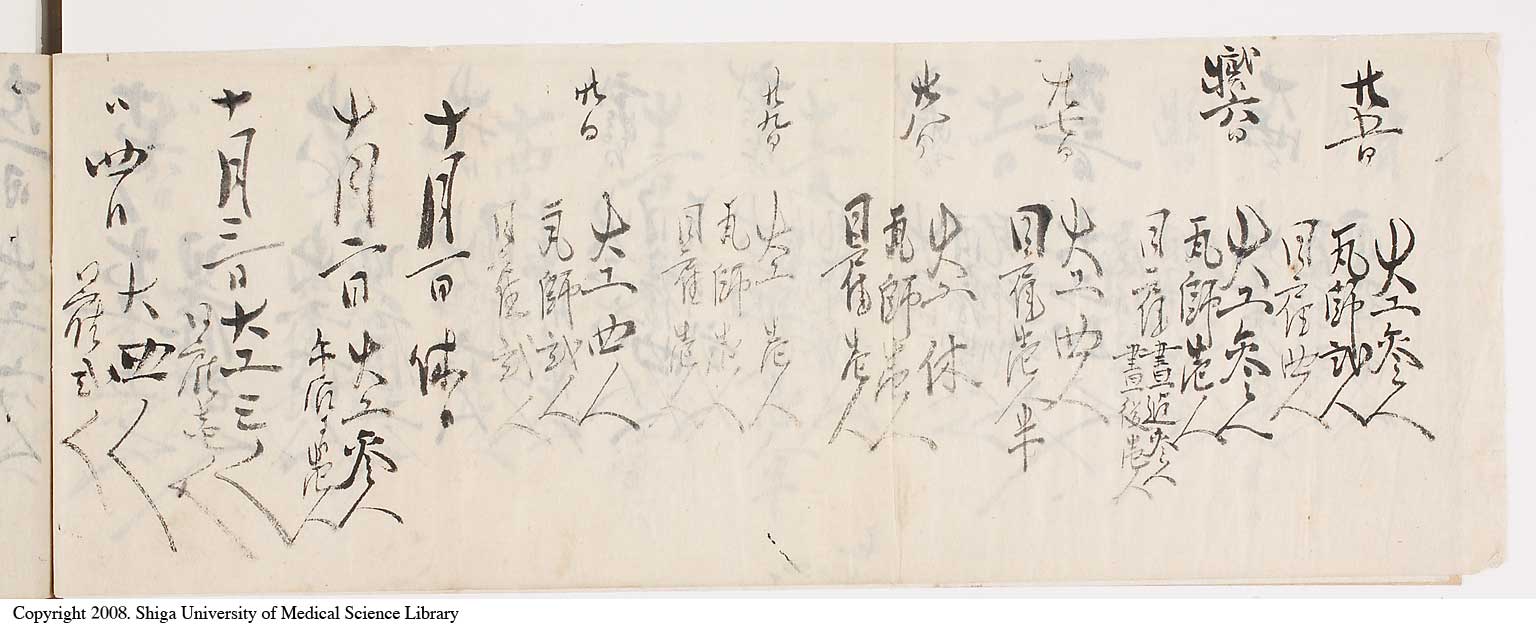 廿五日
大工参人
瓦師弐人
同雇四人
廿六日
大工参人
瓦師壱人
同雇昼迄参人
昼後壱人
廿七日
大工四人
同雇壱人半
廿八日
大工休
瓦師壱人
同雇壱人
廿九日
大工壱人
瓦師壱人
同雇壱人
卅日
大工四人
瓦師弐人
同雇弐人
十月一日休日
十月二日大工参人
午后壱人
十月三日大工三人
同雇壱人
〃四日大四人
雇弐人
Copyright 2008. Shiga University of Medical Science Library